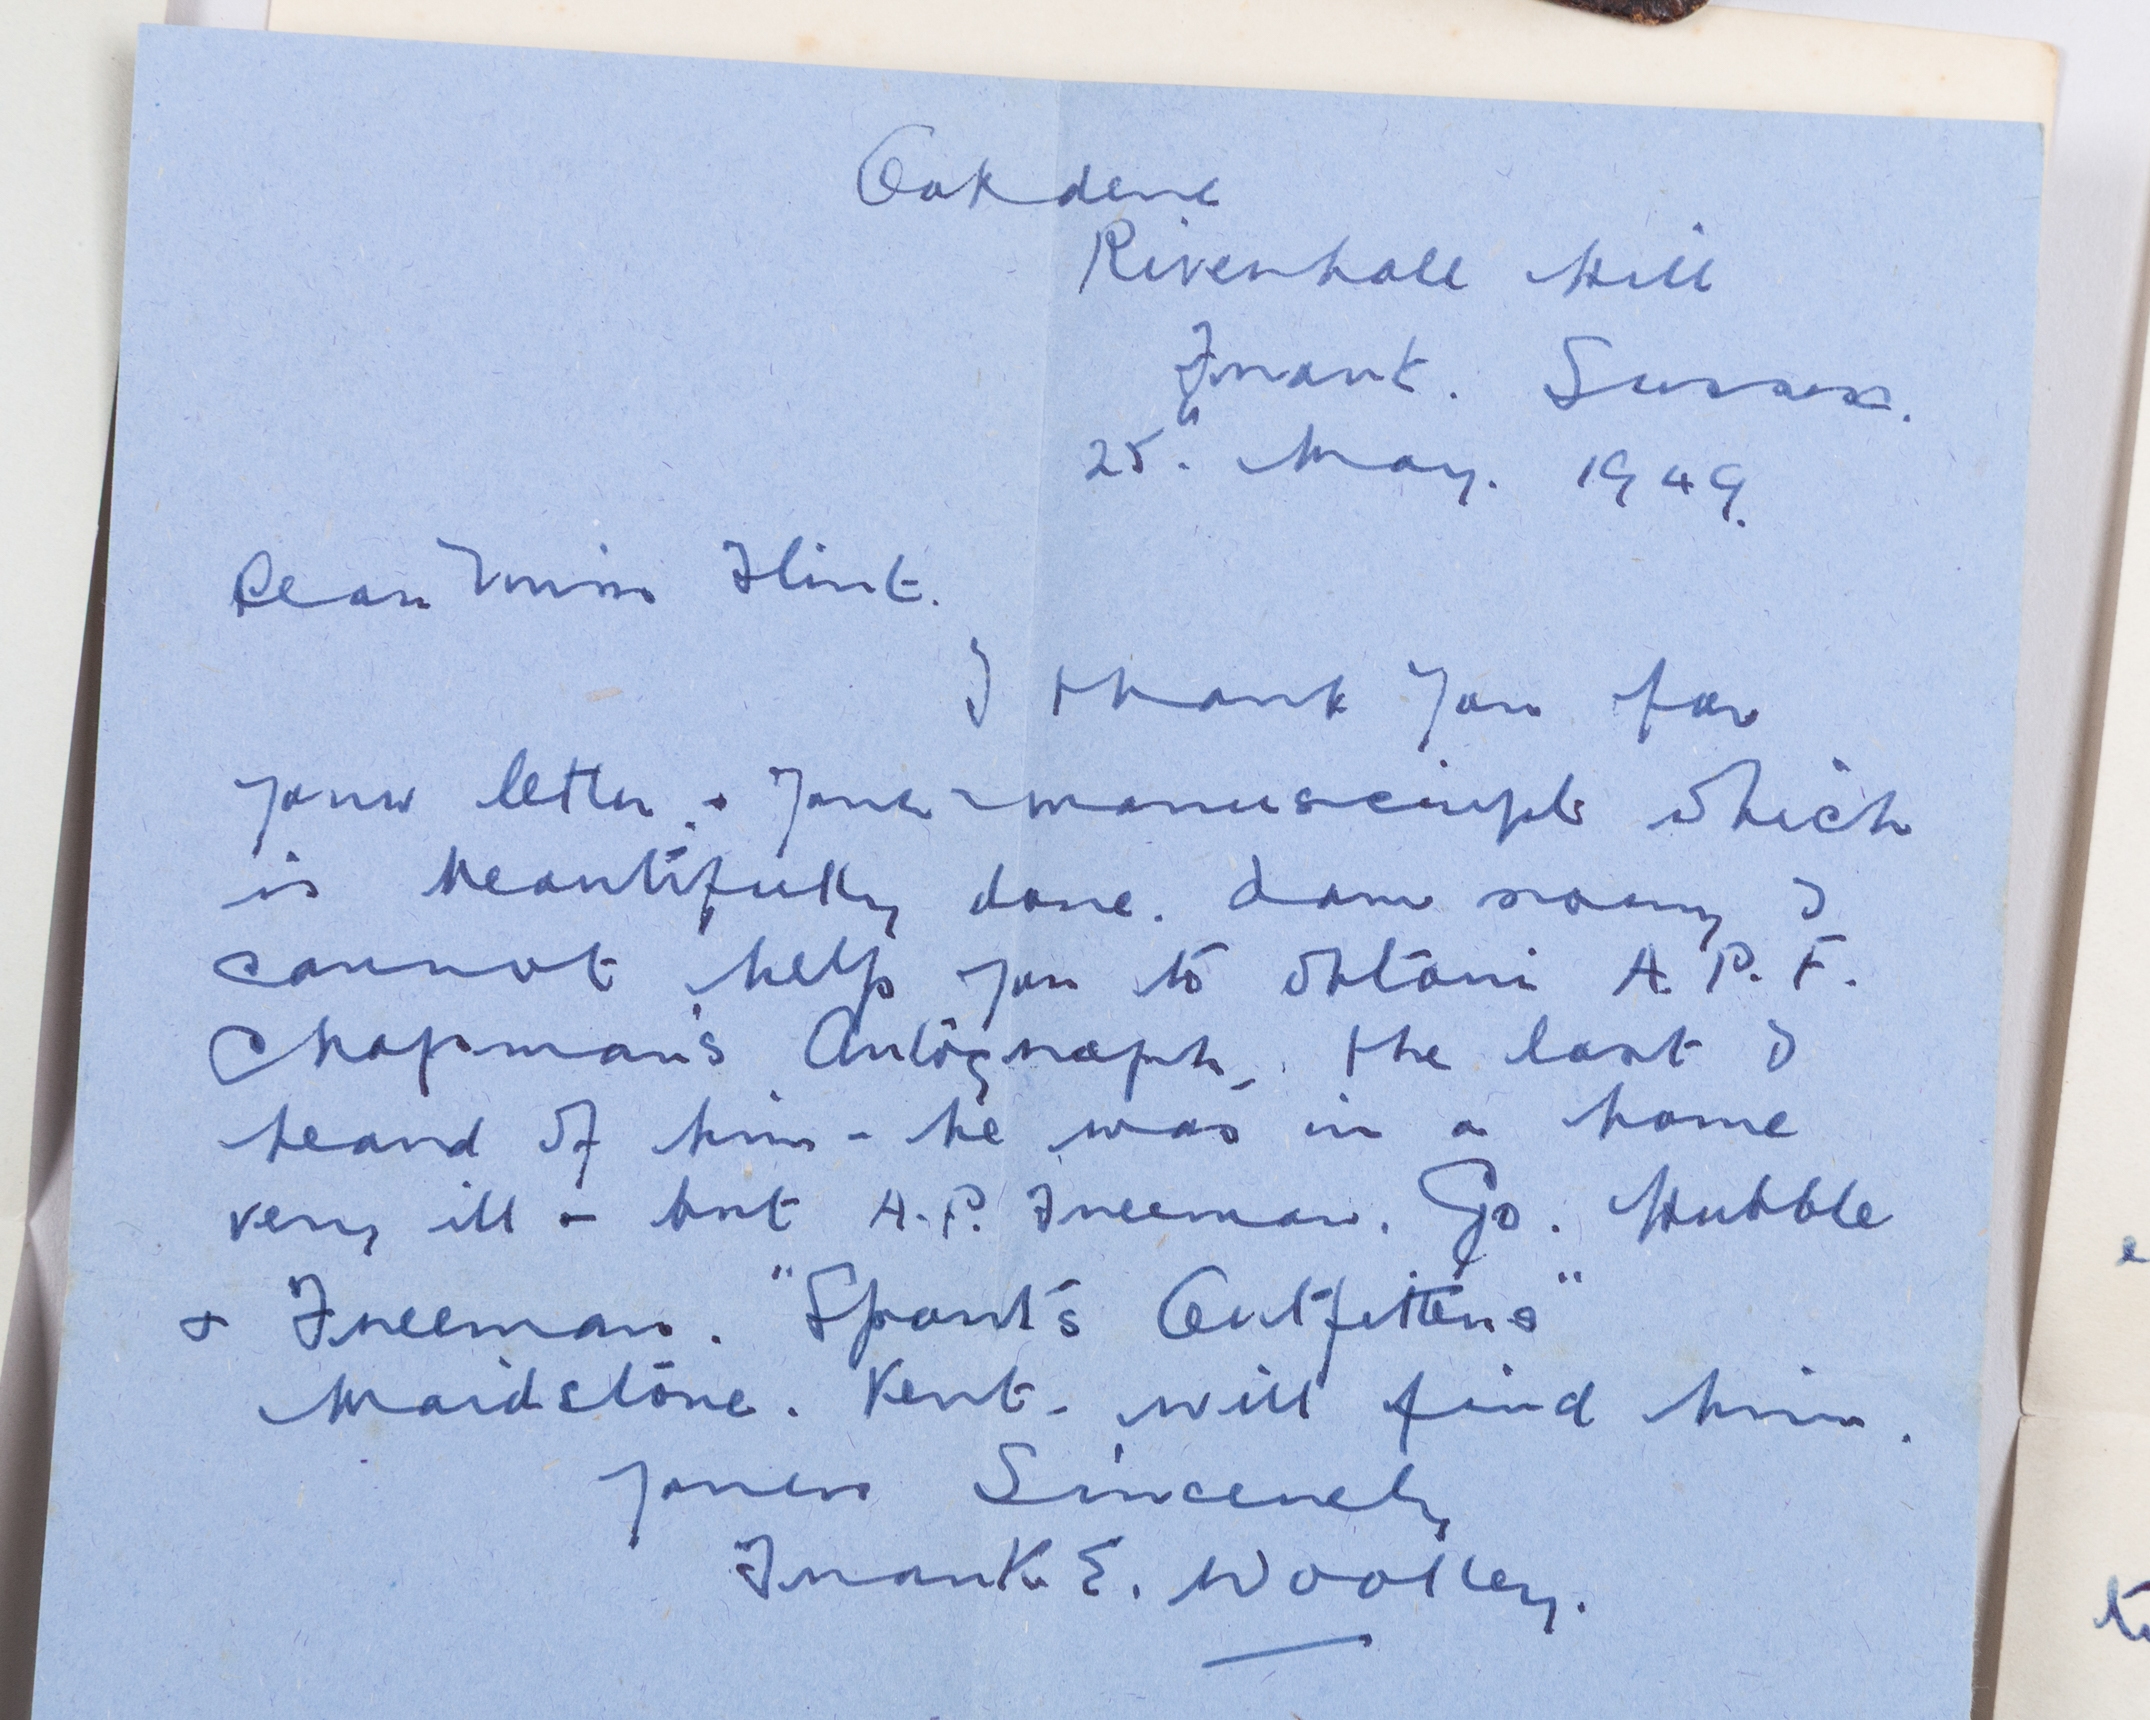 Oakdene
Rivenhall Hill
Frant. Sussex.
25th May. 1949.
Dear Miss Flint.
I thank you for
your letter, & your manuscript which
is beautifully done. I am sorry I
cannot help you to obtain A. P. F.
Chapman's Autograph, the last I
heard of him - he was in a home
very ill - but A.P. Freeman. Co. Hubble
& Freeman. "Sports Outfitters"
Maidstone. Kent - will find him.
Yours Sincerely
Frank E. Woolley.